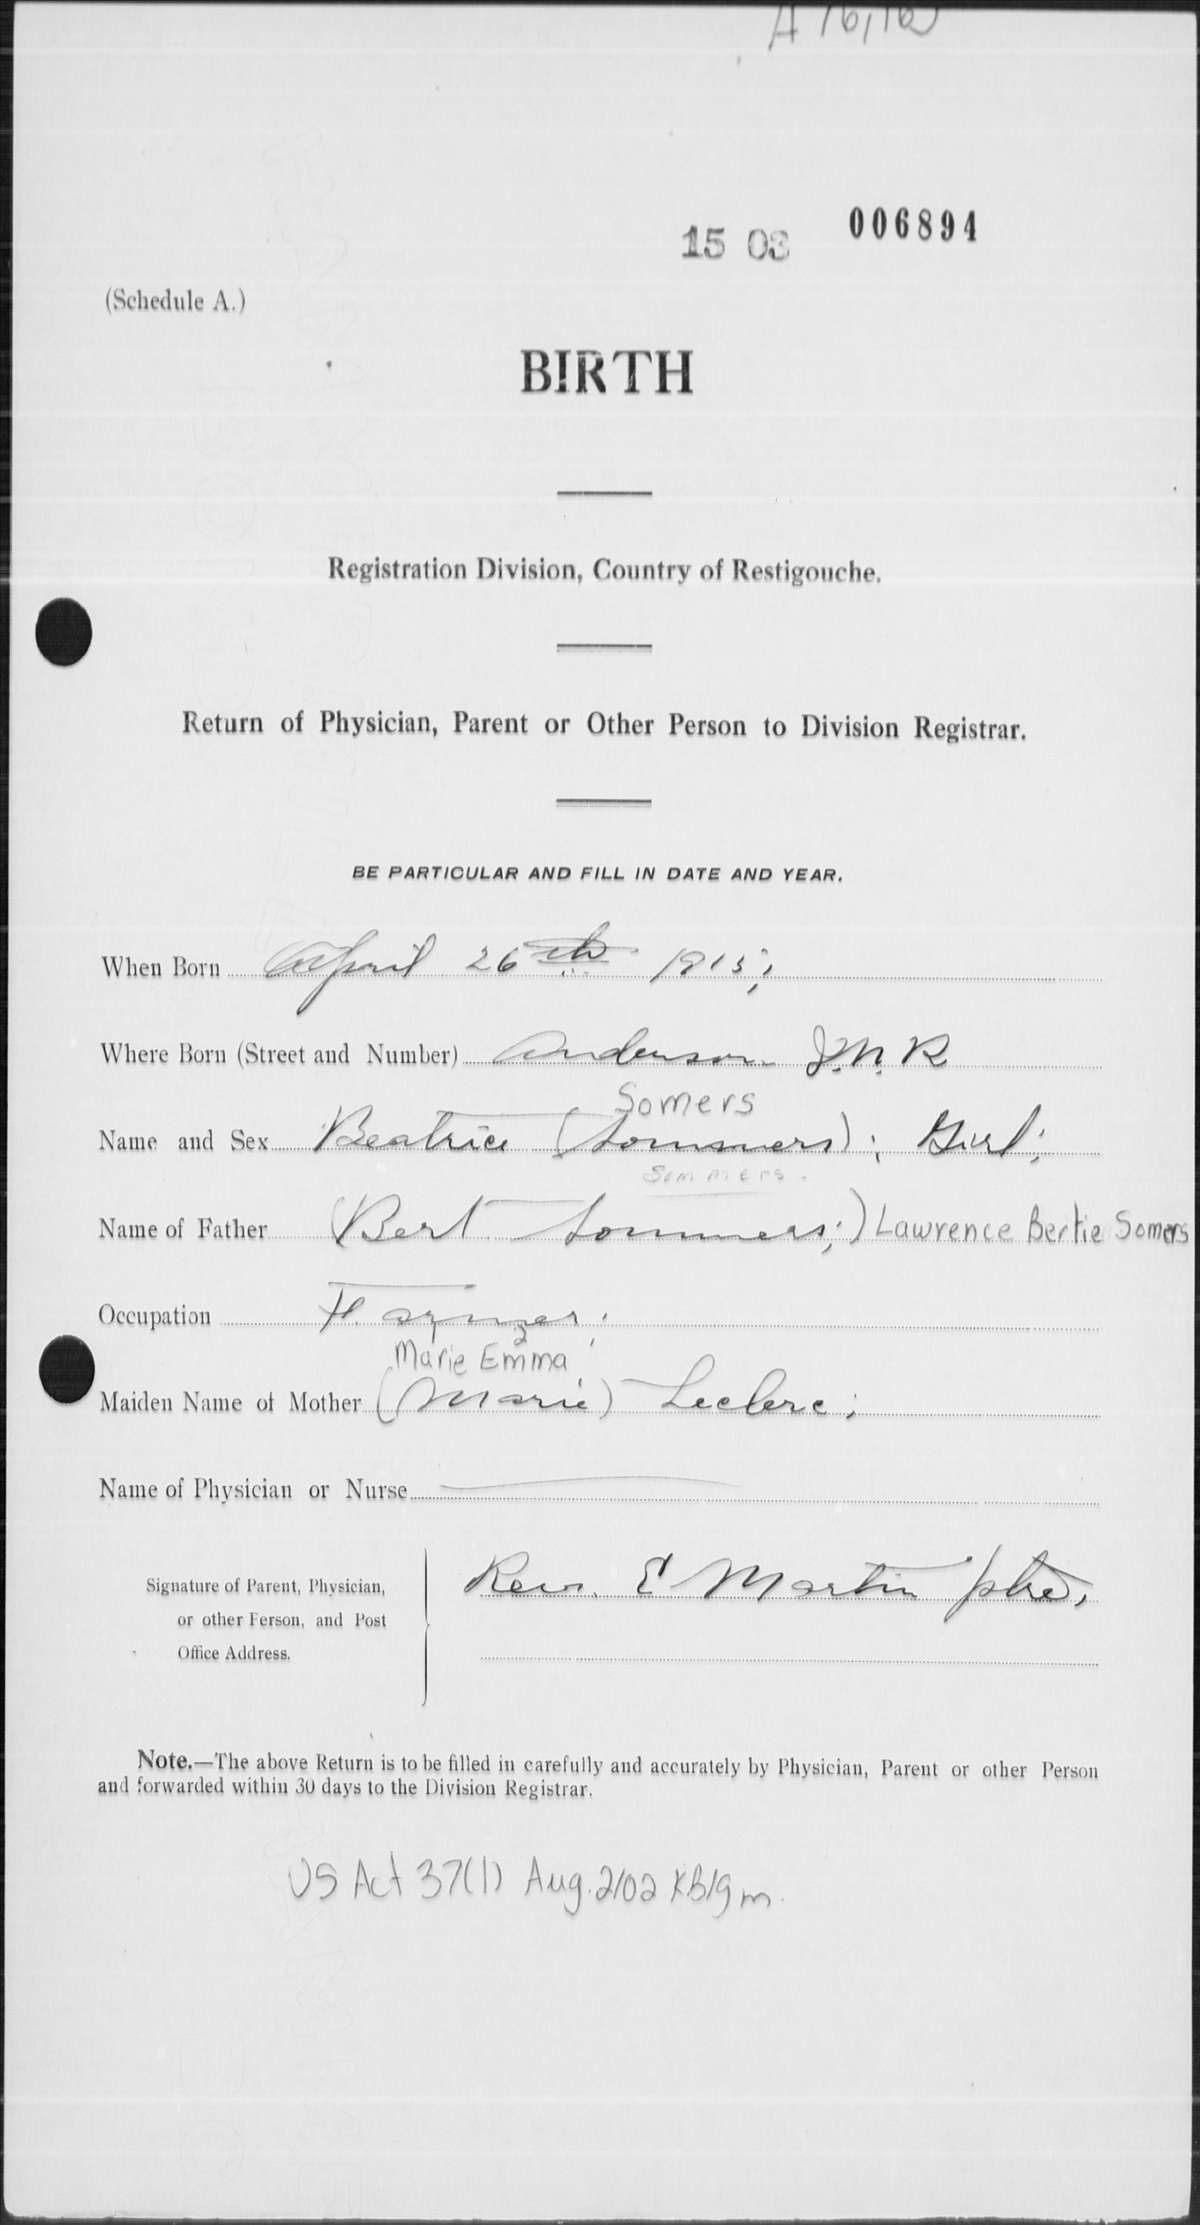 15 03 006894
(Schedule A.)
BIRTH
Registration Division, Country of Restigouche.
Return of Physician, Parent or Other Person to Division Registrar.
BE PARTICULAR AND FILL IN DATE AND YEAR.
When Born April 26th 1915;
Where Born (Street and Number) Anderson J.N.R
Somers
Name and Sex Beatrice (Sommers); Girl;
Sommers.
Name of Father (Bert Sommers;) Lawrence Bertie Somers
Occupation Farmer;
Marie Emma
Maiden Name of Mother (Marie) Leclerc;
Name of Physician or Nurse
Signature of Parent, Physician, Rev. E Martin ptre,
or other Ferson, and Post
Office Address.
Note.—The above Return is to be filled in carefully and accurately by Physician, Parent or other Person
and forwarded within 30 days to the Division Registrar.
VS Act 37(1) Aug. 2/02 KB/gm